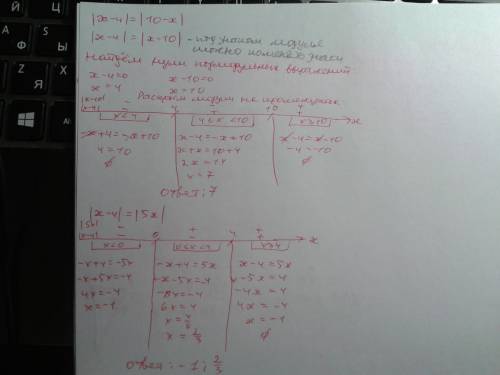 |x-4|=|10-x|
|x-4|=|x-10| - под знаком модуля
можно поменять знаки
Найдём нули подмодульных выражений
x-4=0 x-10=0
x=4 x=10
Раскроем модули на промежутках
|x-10| - - +
|x-4| - + +
4 10 x
x<4 4≤x<10 x≥10
-x+4=-x+10 x-4=-x+10 x-4=x-10
4=10 x+x=10+4 -4=-10
∅ 2x=14 ∅
x=7
Ответ: 7
|x-4|=|5x|
|5x| - + +
|x-4| - - +
0 4 x
x<0 0≤x<4 x≥4
-x+4=-5x -x+4=5x x-4=5x
-x+5x=-4 -x-5x=-4 x-5x=4
4x=-4 -6x=-4 -4x=4
x=-1 6x=4 4x=-4
x=4/6 x=-1
x=2/3 ∅
Ответ: -1; 2/3